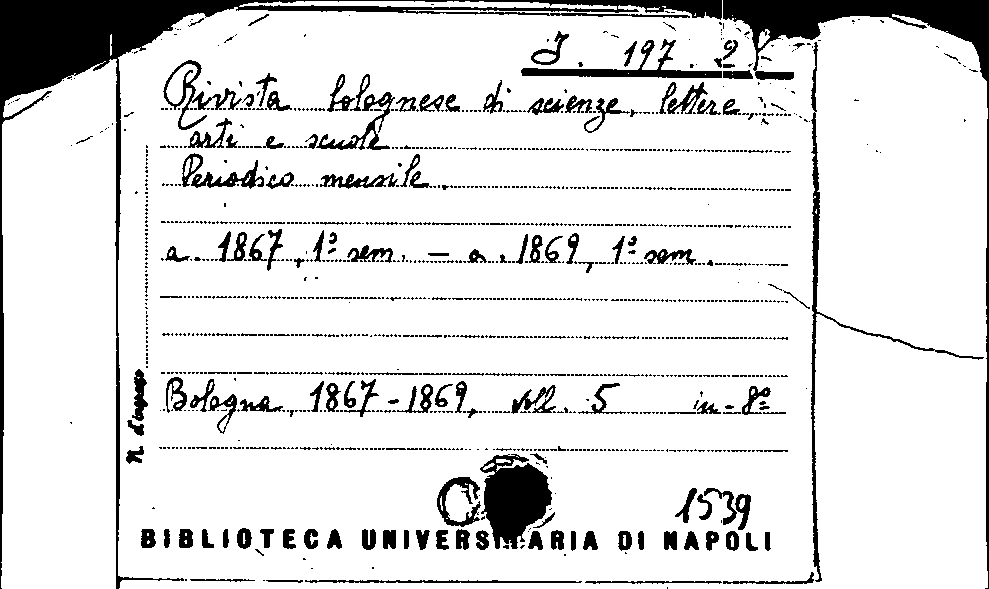 J. 197. 2
Rivista bolognese di scienze, lettere,
arti e scuole.
Periodico mensile.
a. 1867, 1º sem. — a. 1869, 1º sem.
Bologna, 1867-1869, voll. 5 in-8º
N. d'ingresso
1539
BIBLIOTECA UNIVERSITARIA DI NAPOLI